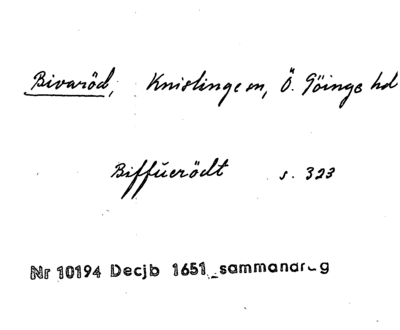 Bivaröd, Knislinge sn, Ö. Göinge hd
Biffŭerödt s. 323
Nr 10194 Decjb 1651 sammandrag